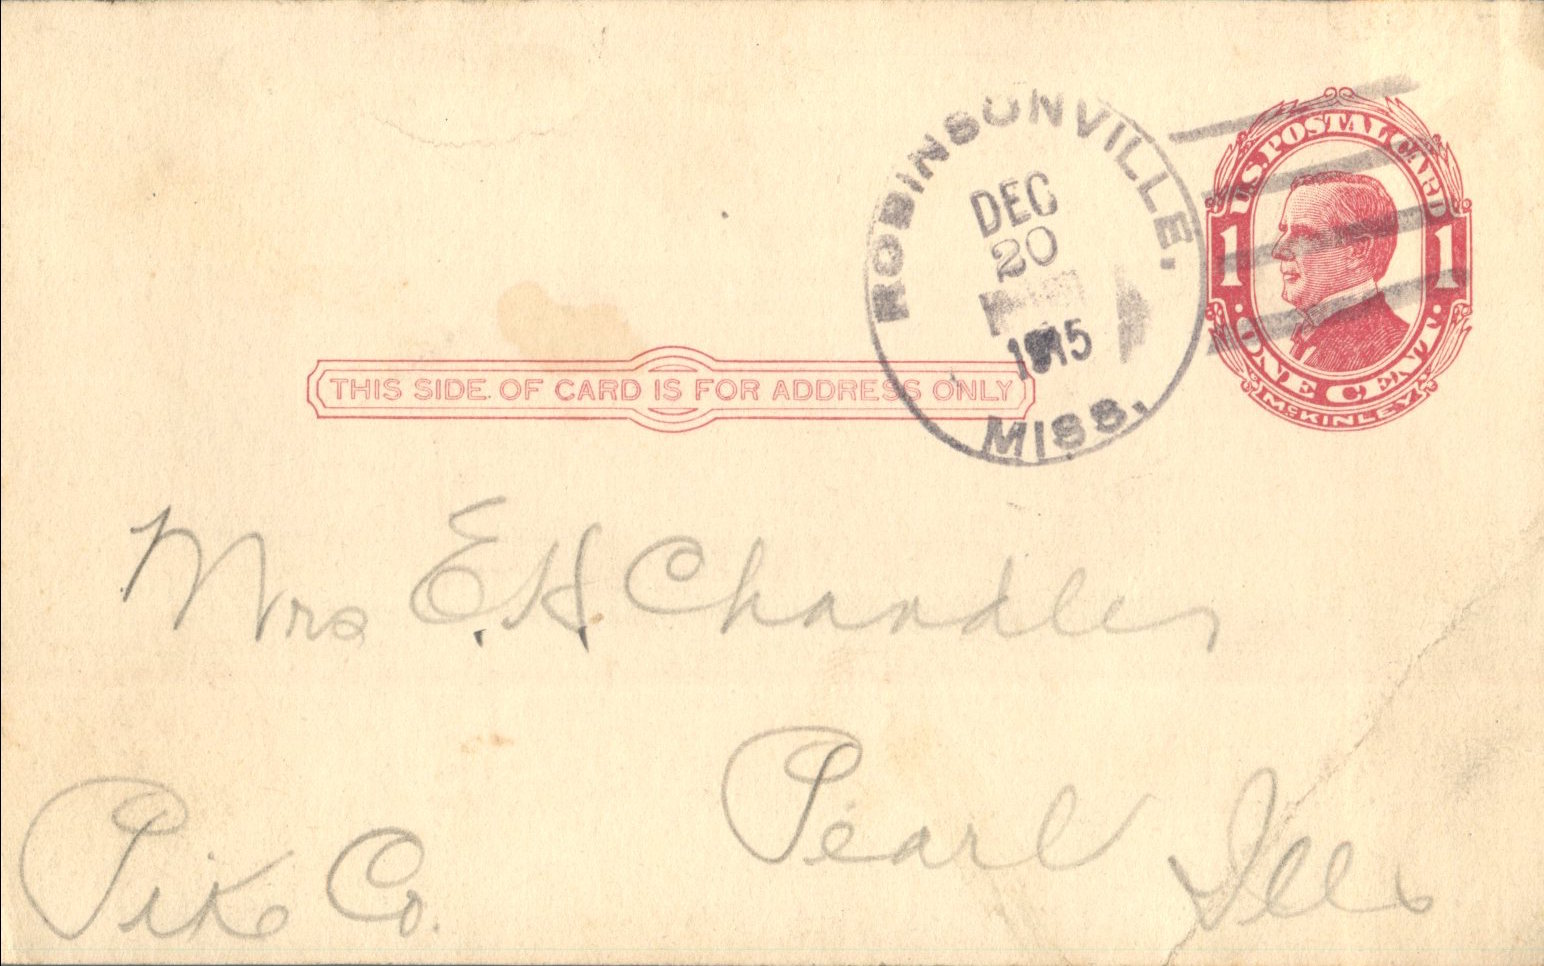 ROBINSONVILLE,
DEC
20
1915
MISS.
U.S. POSTAL CARD
1 1
· ONE CENT ·
McKINLEY
THIS SIDE OF CARD IS FOR ADDRESS ONLY
Mrs E.H. Chandler
Pearl Ills
Pike Co.